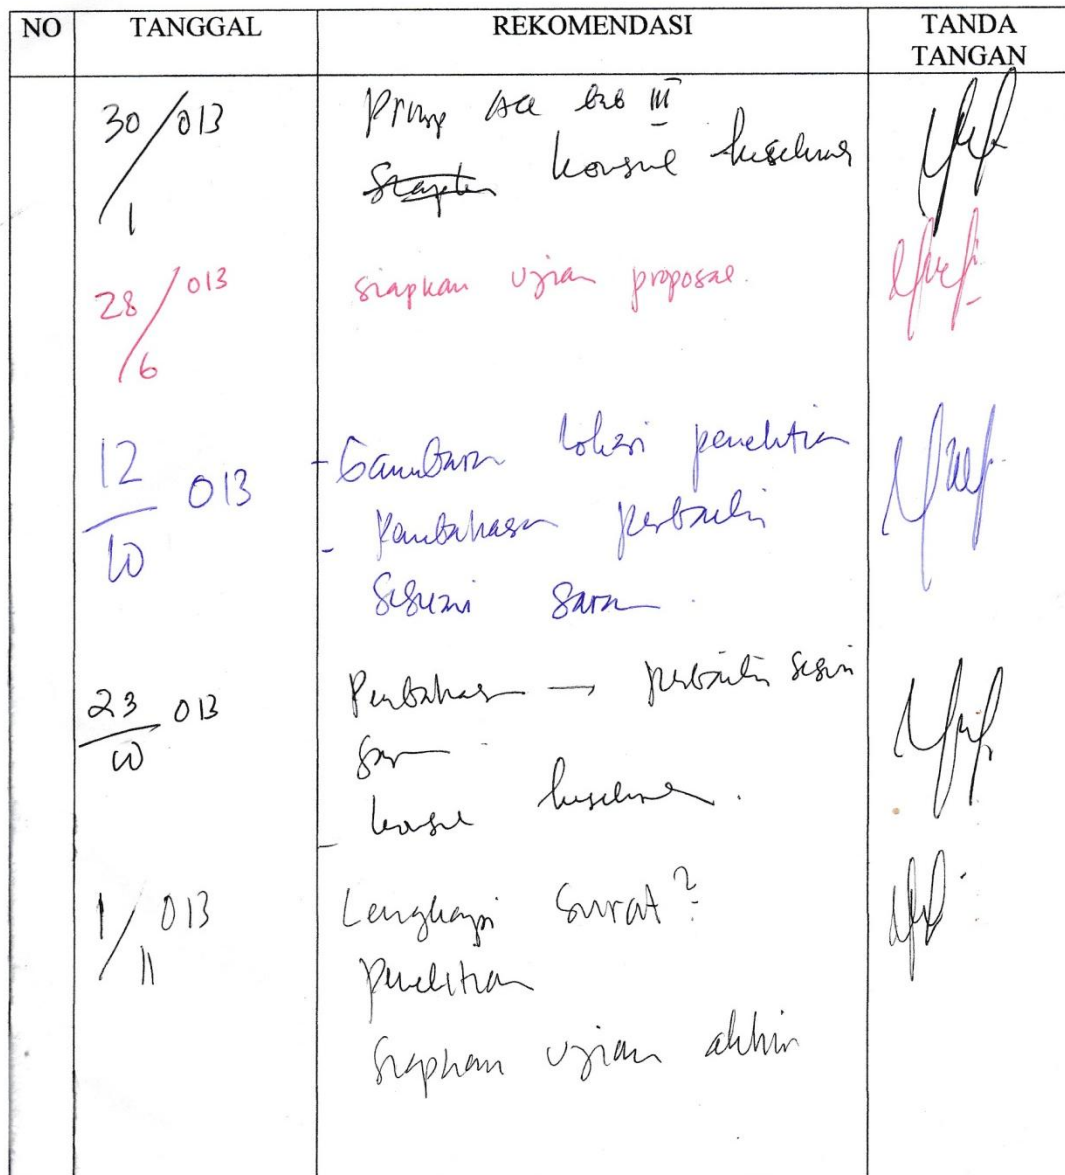 NO TANGGAL REKOMENDASI TANDA
TANGAN
30/1 013 Prinsip acc bab III
konsul keseluruhan
28/6 013 siapkan ujian proposal.
12/10 013 - Gambaran lokasi penelitian
- Pembahasan perbaiki
sesuai saran.
23/10 013 Pembahasan → perbaiki sesuai
saran
- konsul keseluruhan.
1/11 013 Lengkapi surat2
penelitian
siapkan ujian akhir